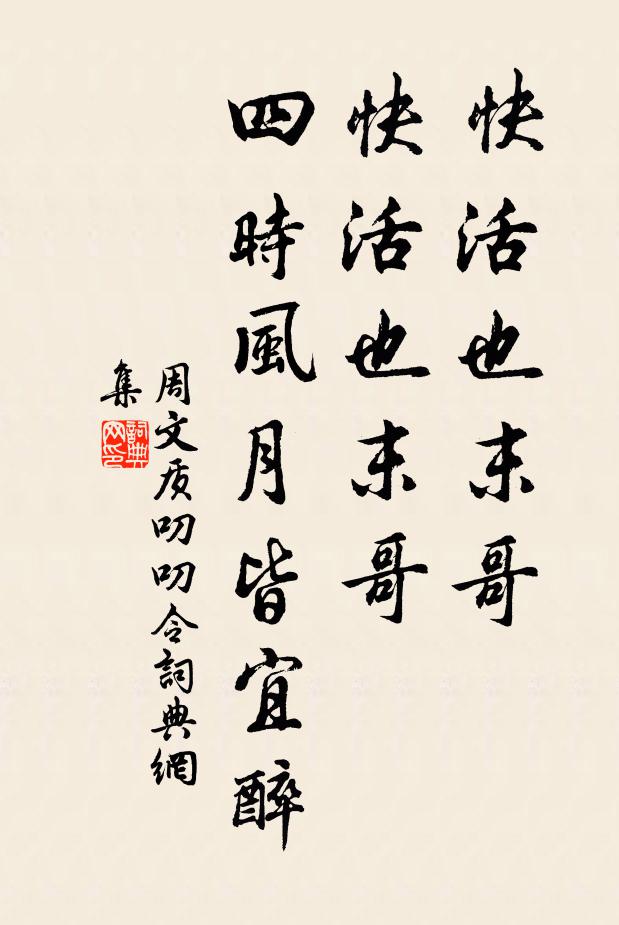 快活也末哥
快活也末哥
四時風月皆宜醉
周文质叨叨令詞典網
集
詞典
网印